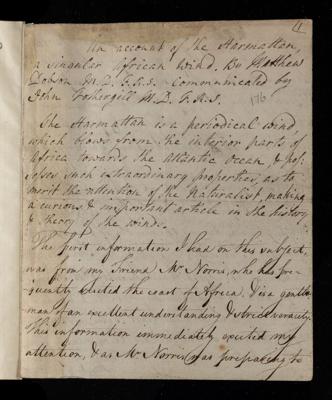 1
An account of the Harmattan,
a singular African wind. By Matthew
Dobson M.D. F.R.S. communicated by
John Fothergill M.D. F.R.S.
176
The Harmattan is a periodical wind
which blows from the interior parts of
Africa towards the Atlantic Ocean, & pos-
sesses such extraordinary properties, as to
merit the attention of the Naturalist, making
a curious & important article in the history
& theory of the winds.
The first information I had on this subject,
was from my friend Mr Norris, who has fre-
quently visited the coast of Africa, & is a gentle-
man of an excellent understanding & strict veracity.
This information immediately excited my
attention, & as Mr Norris was preparing to